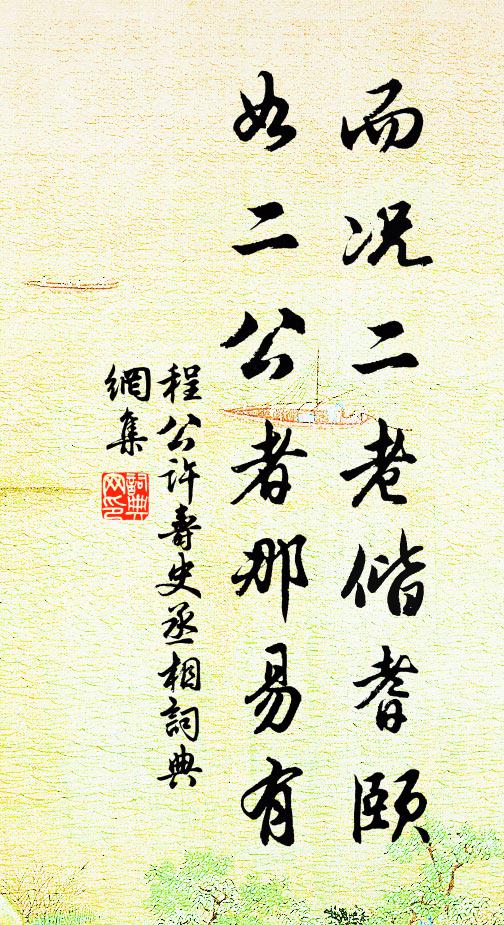 而况二老偕耆颐
如二公者那易有
程公许寿史丞相詞典
網集
詞典网印